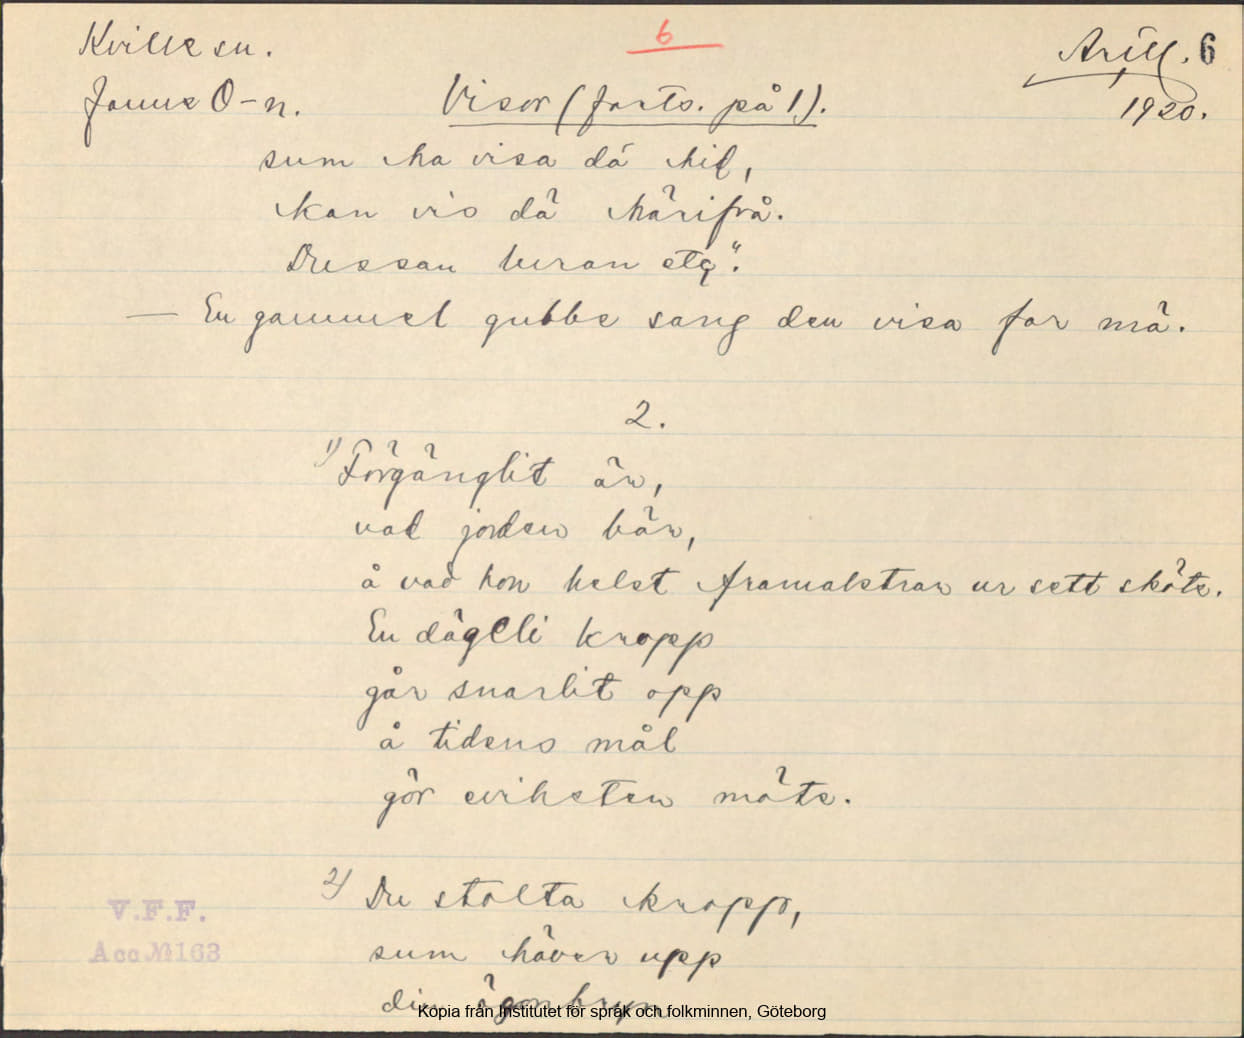 Kville sn.
6
Arill. 6
Janne O-n.
Visor (forts. på 1).
1920.
sum ha visa dä hil,
kan vis dä härifrå.
Dussan buran etc".
— En gammel gubbe sang den visa for mä.
2.
1) Förgänglit är,
vad jorden bär,
å vad hon helst framalstrar ur sett sköte.
En dägeli kropp
går snarlit opp
å tidens mål
gör eviheten möte.
2) Du stolta kropp,
sum häver upp
din ögonbryn
V.F.F.
Acc.№163
Kopia från Institutet för språk och folkminnen, Göteborg